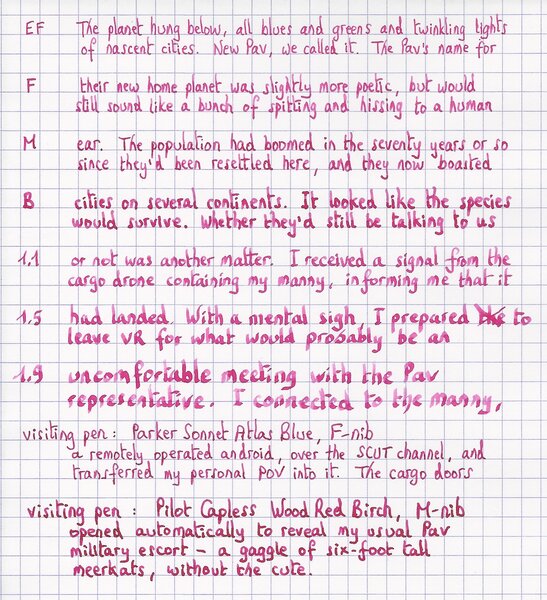 EF The planet hung below, all blues and greens and twinkling lights
of nascent cities. New Pav, we called it. The Pav's name for
F their new home planet was slightly more poetic, but would
still sound like a bunch of spitting and hissing to a human
M ear. The population had boomed in the seventy years or so
since they'd been resettled here, and they now boasted
B cities on several continents. It looked like the species
would survive. Whether they'd still be talking to us
1.1 or not was another matter. I received a signal from the
cargo drone containing my manny, informing me that it
1.5 had landed. With a mental sigh, I prepared to
leave VR for what would probably be an
1.9 uncomfortable meeting with the Pav
representative. I connected to the manny,
visiting pen: Parker Sonnet Atlas Blue, F-nib
a remotely operated android, over the SCUT channel, and
transferred my personal POV into it. The cargo doors
visiting pen: Pilot Capless Wood Red Birch, M-nib
opened automatically to reveal my usual Pav
military escort – a gaggle of six-foot tall
meerkats, without the cute.